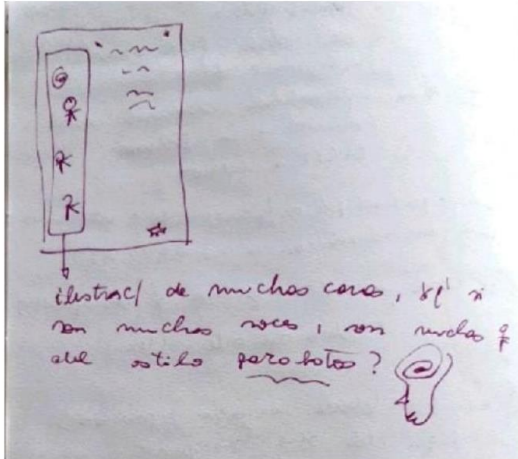 ilustrac/ de muchas caras, y q' si
son muchas voces, son muchas
del estilo garabatos?